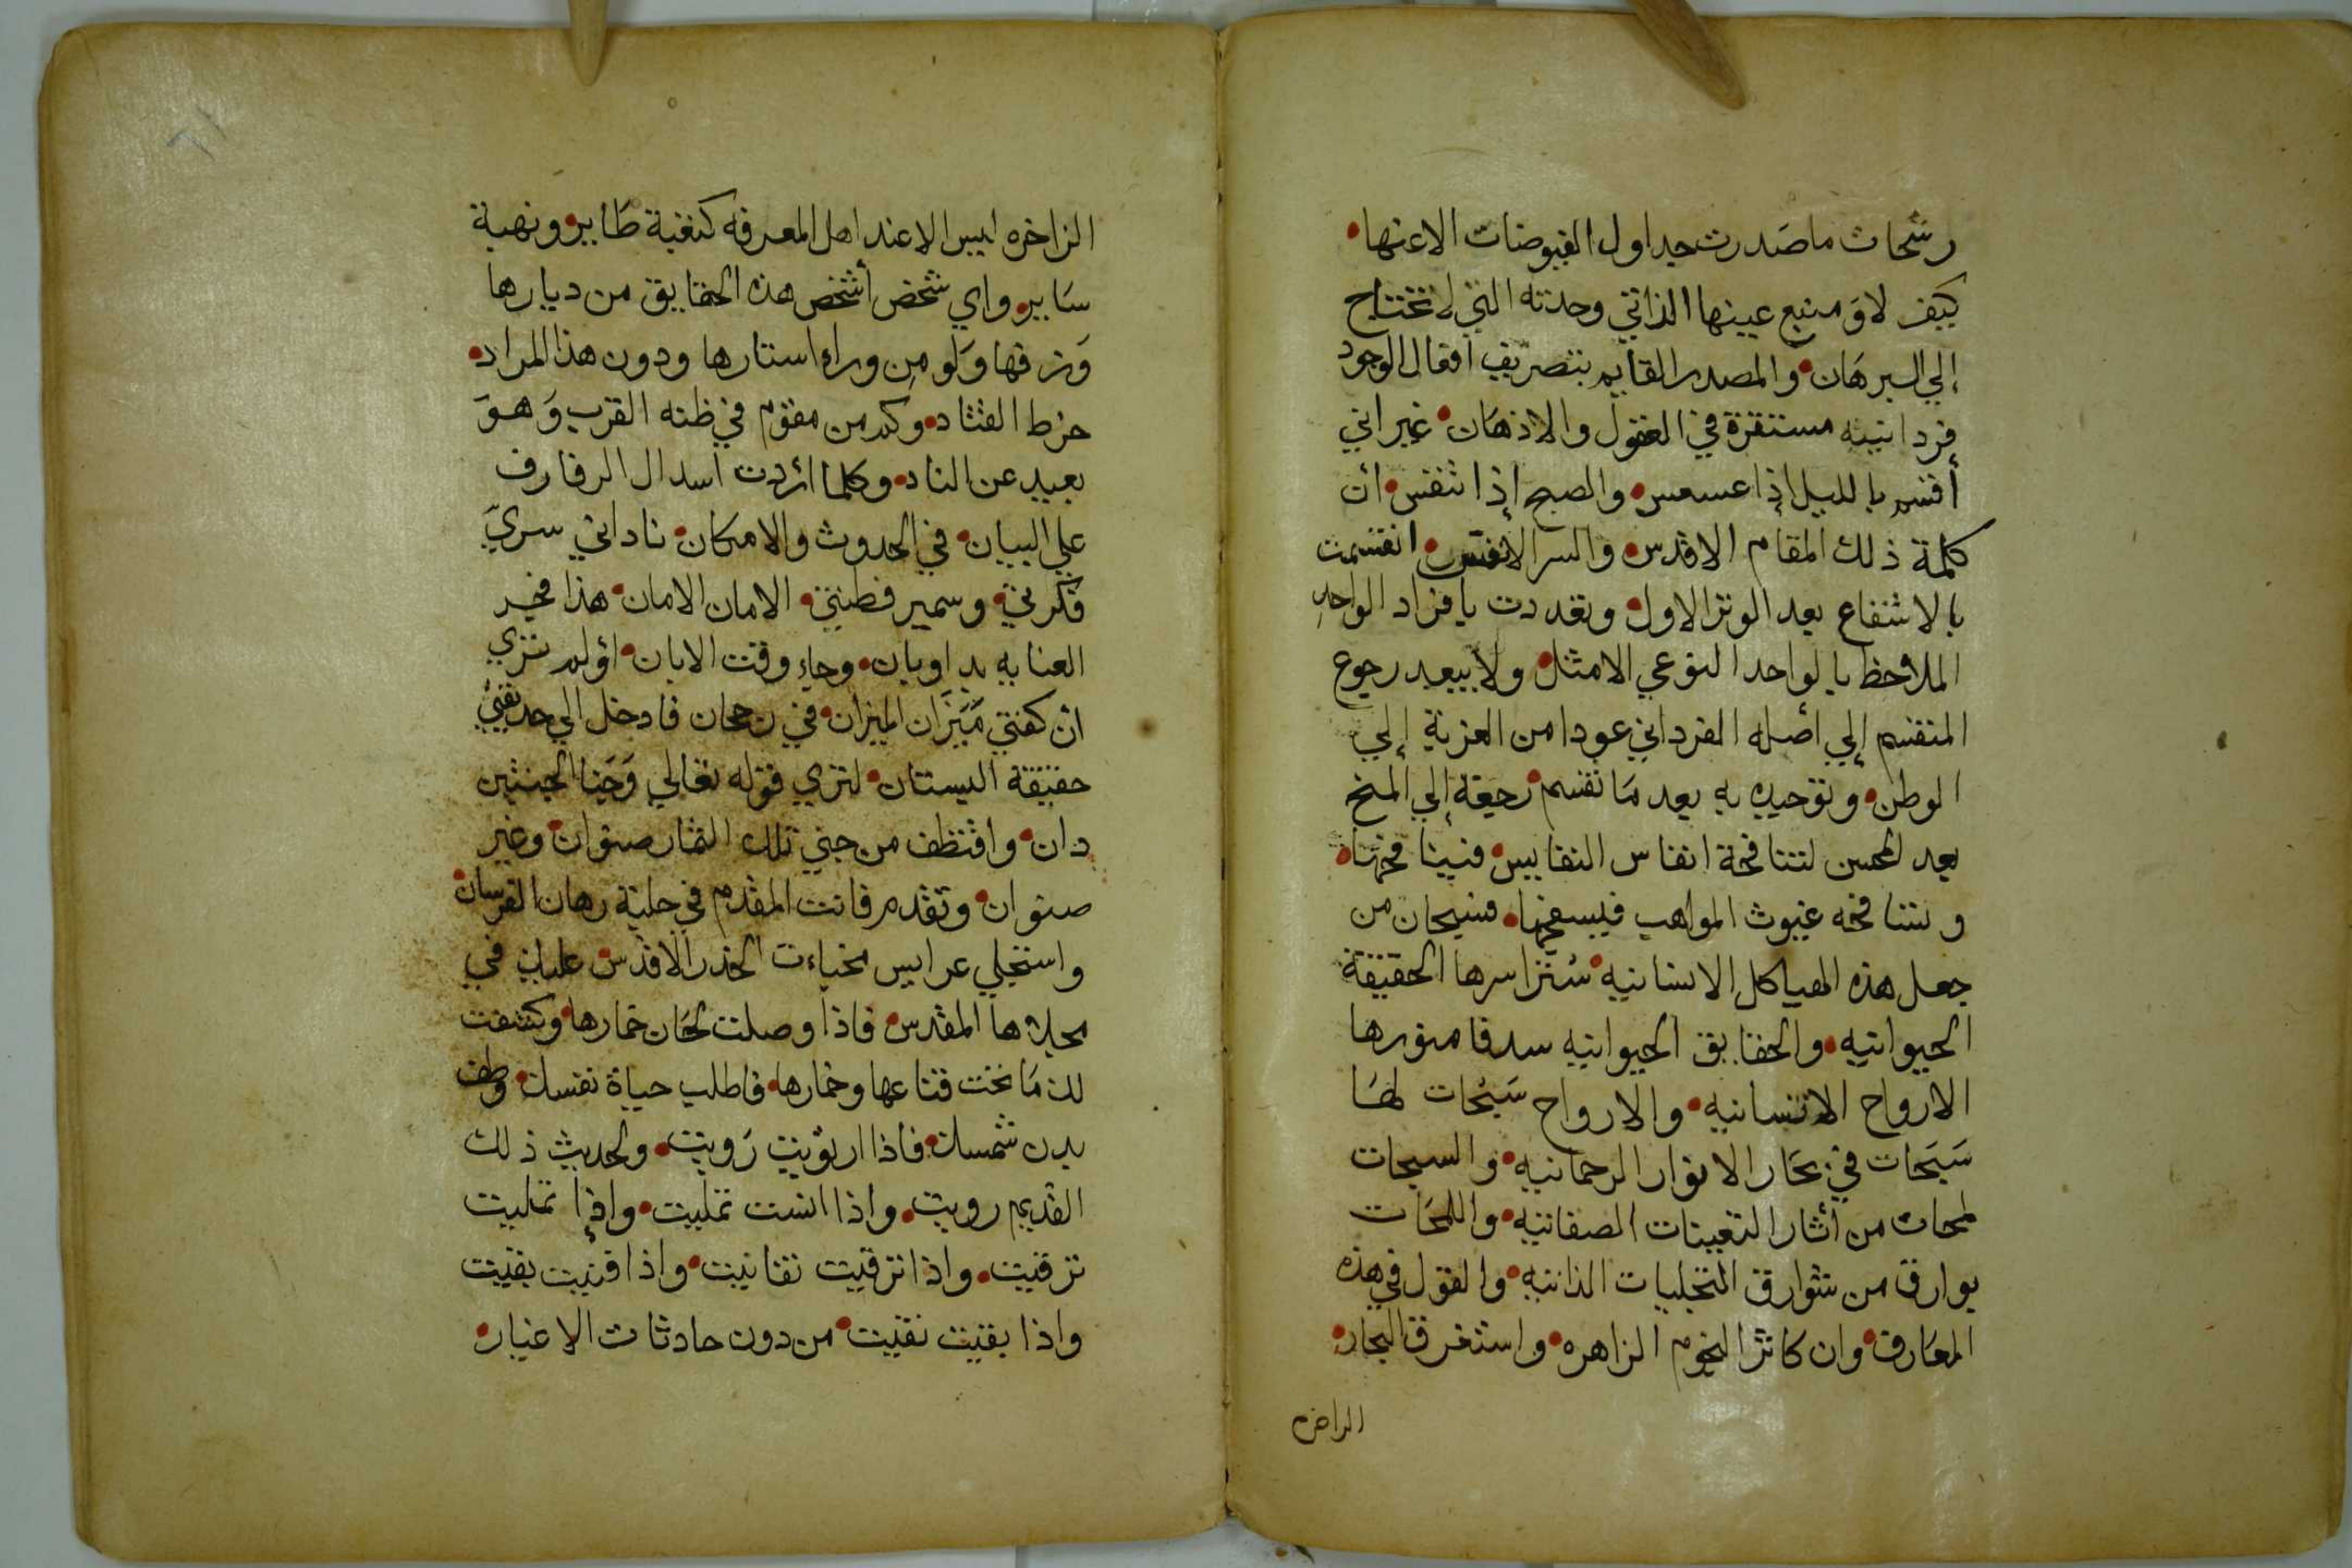 رشحات ما صدرت جداول الفيوضات الا عنها
كيف لا وَمنبع عينها الذاتي وحدته التي لا تحتاج
إلي البرهَان والمصدر القايم بتصريف افعال الوجود
فردانيته مستقرة في العقول والاذهَان غير اني
أقسم بالليل إذا عسعس والصبح إذا تنفس ان
كلمة ذلك المقام الاقدس والسر الانفس انقسمت
بالاشفاع بعد الوتر الاول وتعددت بافراد الواحد
الملاحظ بالواحد النوعي الامثل ولا يبعد رجوع
المنقسم إلي اصله الفرداني عودا من الغربة إلي
الوطن وتوحيده به بعد مَا تقسم رجعة إلي المنح
بعد المحن لتنافحة انفاس النفايس فنينا فحمتاه
وتنافحه غيوث المواهب فيسفحها فسبحان من
جعل هذه الهياكل الانسانيه سترا سرها الحقيقة
الحيوانيه والحقايق الحيوانيه سدفا منورها
الارواح الانسانيه والارواح سَبحات لهَا
سَبَحَات في بحَار الانوار الرحمانيه والسبحات
لمحات من أثار التعينات الصفاتيه واللمحَات
بوارق من شوارق التجليات الذاتيه والقول في هذه
المعَارف وان كاثر النجوم الزاهره واستغرق البحار
الزاخره
الزاخره ليس الا عند اهل المعرفه كنغبة طَاير ونهبة
سَاير واي شخص أشخص هذه الحقايق من ديارها
وَزفها وَلو مِن وراء استارها ودون هذا المراد
خرط القتاد وكم من مقوم في ظنه القرب وَهوَ
بعيد عن الناد وكلما اردت اسدال الرفارف
علي البيان في الحدوث والامكان ناداني سريّ
فكرتي وسمير فطنتي الامان الامان هذا فجر
العنايه بدا وبان وجاء وقت الابان اولم تري
ان كفتي مَيَزَان الميزان في رجحان فادخل الي حديقتي
حقيقة البستان لتري قوله تعالي وَجَنا الجنتين
دان واقتطف من جني تلك الثمار صنوان وغير
صنوان وتقدم فانت المقدم في حلبة رهان الفرسان
واستجلي عرايس مخباءت الخدر الاقدس عليك في
مجلاها المقدس فاذا وصلت لحَان خمارها وكشفت
لك مَا تحت قناعها وخمارها فاطلب حياة نفسك وطف
بدن شمسك فاذا ارتويت رَويت والحديث ذلك
القديم رويت واذا انست تمليت واذا تمليت
ترقيت واذا ترقيت تفانيت واذا فنيت بقيت
واذا بقيت نقيت من دون حادثات الاغيار